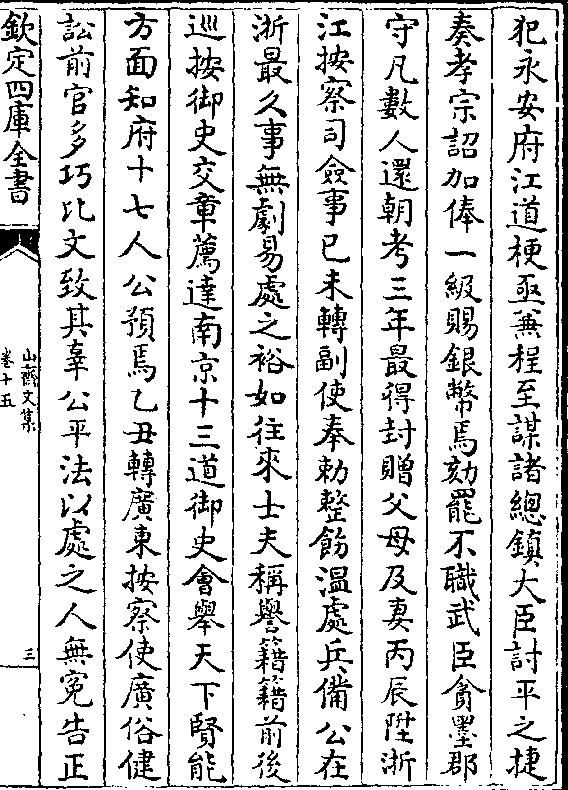 犯永安府江道梗亟兼程至謀諸總鎮大臣討平之捷
奏孝宗詔加俸一級賜銀幣焉劾罷不職武臣貪墨郡
守凡數人還朝考三年最得封贈父母及妻丙辰陞浙
江按察司僉事已未轉副使奉勅整飭溫處兵備公在
浙最久事無劇易處之裕如往來士夫稱譽籍籍前後
巡按御史交章薦達南京十三道御史會舉天下賢能
方面知府十七人公預焉乙丑轉廣東按察使廣俗健
訟前官多巧比文致其辜公平法以處之人無寃告正
欽定四庫全書
山齋文集
卷十五
三